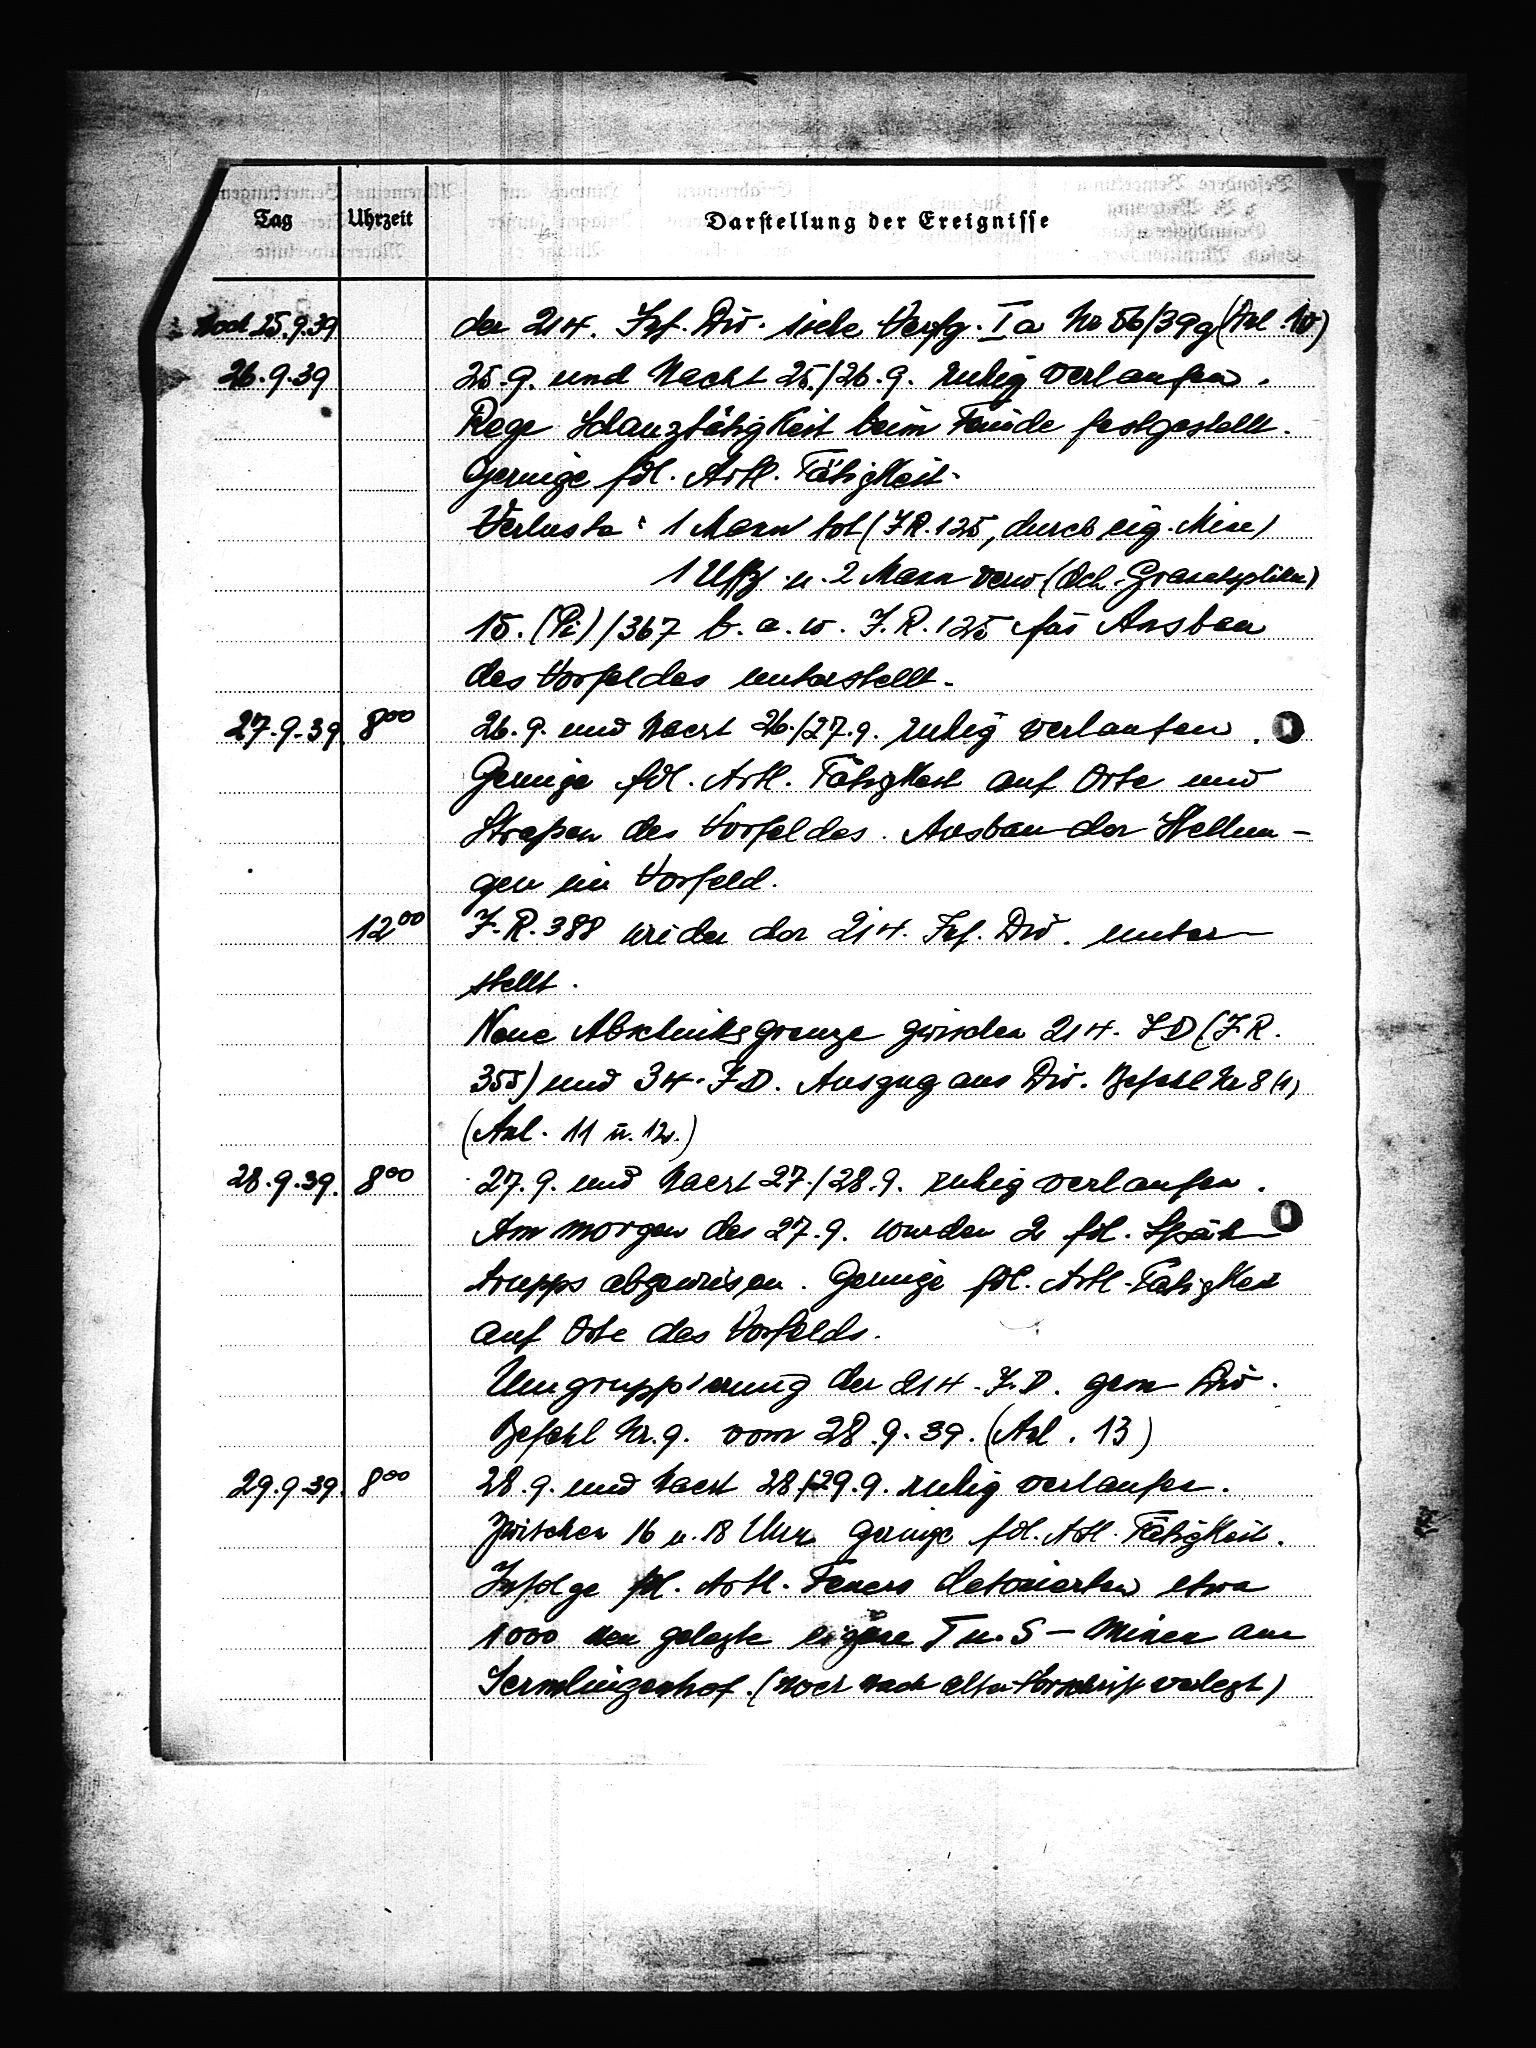 Tag Uhrzeit Darstellung der Ereignisse
noch 25.9.39 der 214. Inf. Div. siehe Verfg. Ia Nr 56/39 g (Anl. 10)
26.9.39 25.9. und Nacht 25./26.9. ruhig verlaufen.
Rege Schanztätigkeit beim Feinde festgestellt.
Geringe fdl. Artl. Tätigkeit.
Verluste: 1 Mann tot (J.R. 125, durch eig. Mine)
1 Uffz. u. 2 Mann verw (dch. Granatsplitter)
15. (Pi)/367 b. a. w. J.R. 125 für Ausbau
des Vorfeldes unterstellt.
27.9.39. 8⁰⁰ 26.9. und Nacht 26./27.9. ruhig verlaufen.
Geringe fdl. Artl. Tätigkeit auf Orte und
Straßen des Vorfeldes. Ausbau der Stellun-
gen im Vorfeld.
12⁰⁰ J.R. 388 wieder der 214. Inf. Div. unter
stellt.
Neue Abschnittsgrenze zwischen 214. J D (J.R.
355) und 34. J D. Auszug aus Div. Befehl Nr 8 (1)
(Anl. 11 u. 12.)
28.9.39. 8⁰⁰ 27.9. und Nacht 27./28.9. ruhig verlaufen.
Am morgen des 27.9. wurden 2 fdl. Späh
trupps abgewiesen. Geringe fdl. Artl. Tätigkeit
auf Orte des Vorfelds.
Umgruppierung der 214. J.D. gem Div.
Befehl Nr. 9. vom 28.9.39. (Anl. 13)
29.9.39. 8⁰⁰ 28.9. und Nacht 28./29.9. ruhig verlaufen.
Zwischen 16 u. 18 Uhr geringe fdl. Artl. Tätigkeit.
Infolge fdl. Artl. Feuers detonierten etwa
1000 neu gelegte eigene T u. S – Minen am
Sermlingerhof. (noch nach alter Vorschrift verlegt)